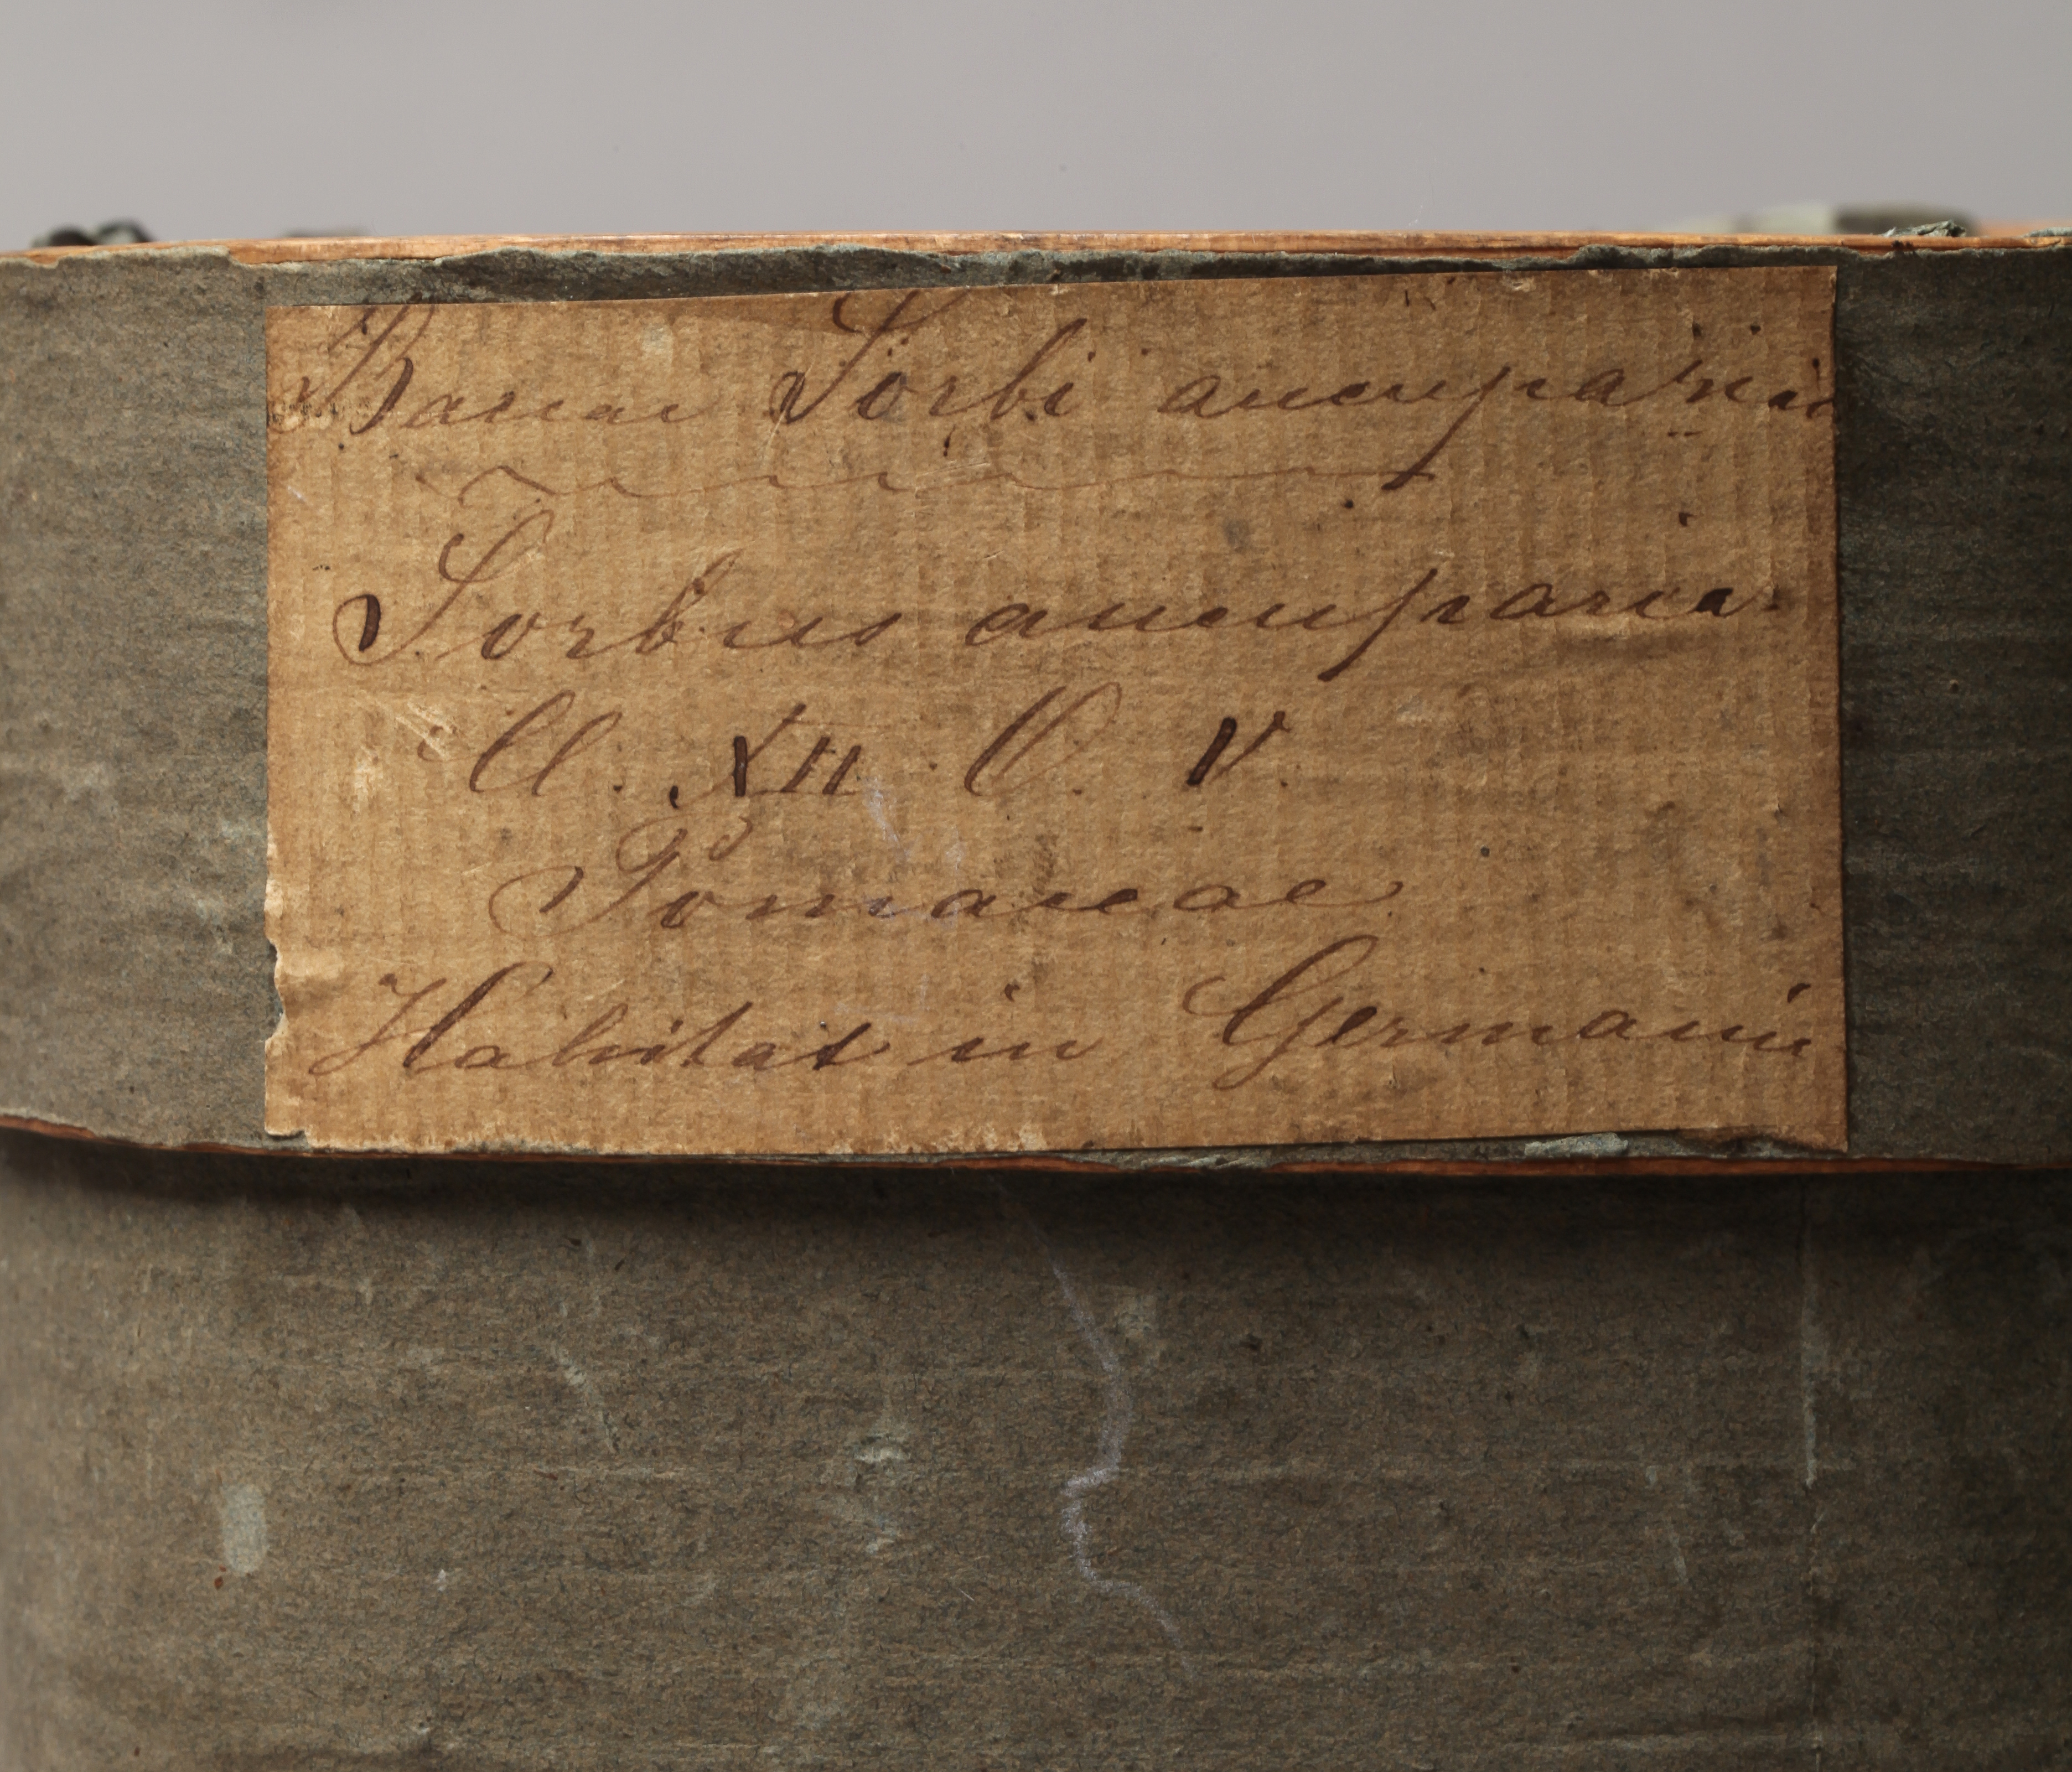 Baccae Sorbi aucupariae
Sorbus aucuparia
Cl. XII O. V.
Pomaceae
Habitat in Germania